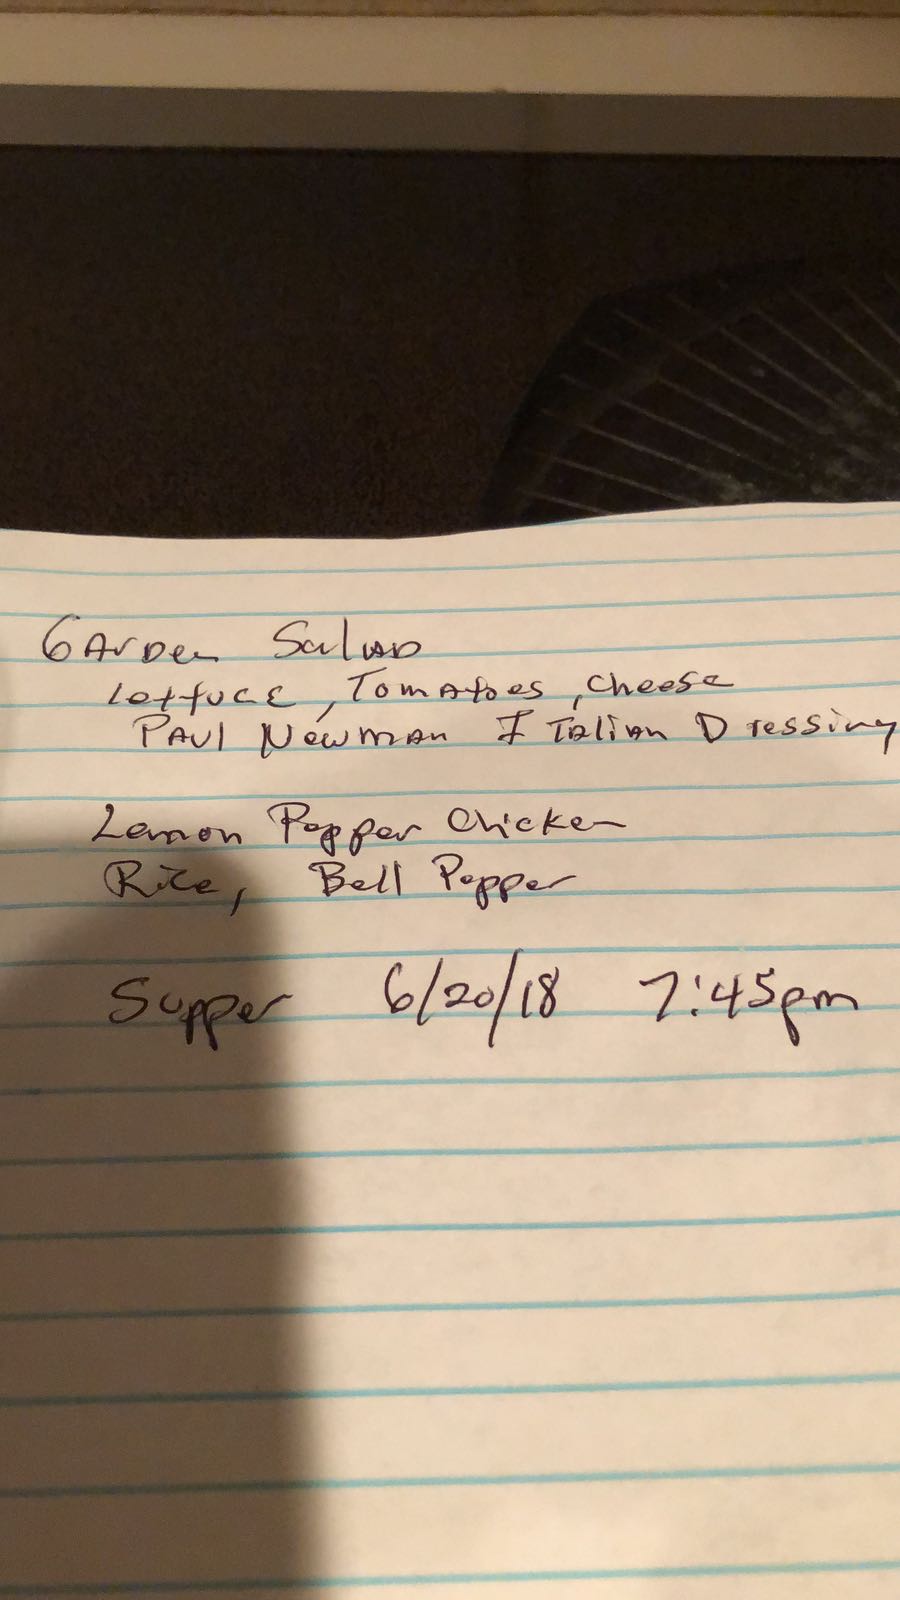 Garden Salad
Lettuce, Tomatoes, Cheese
Paul Newman Italian Dressing
Lemon Pepper Chicken
Rice, Bell Pepper
Supper 6/20/18 7:45pm